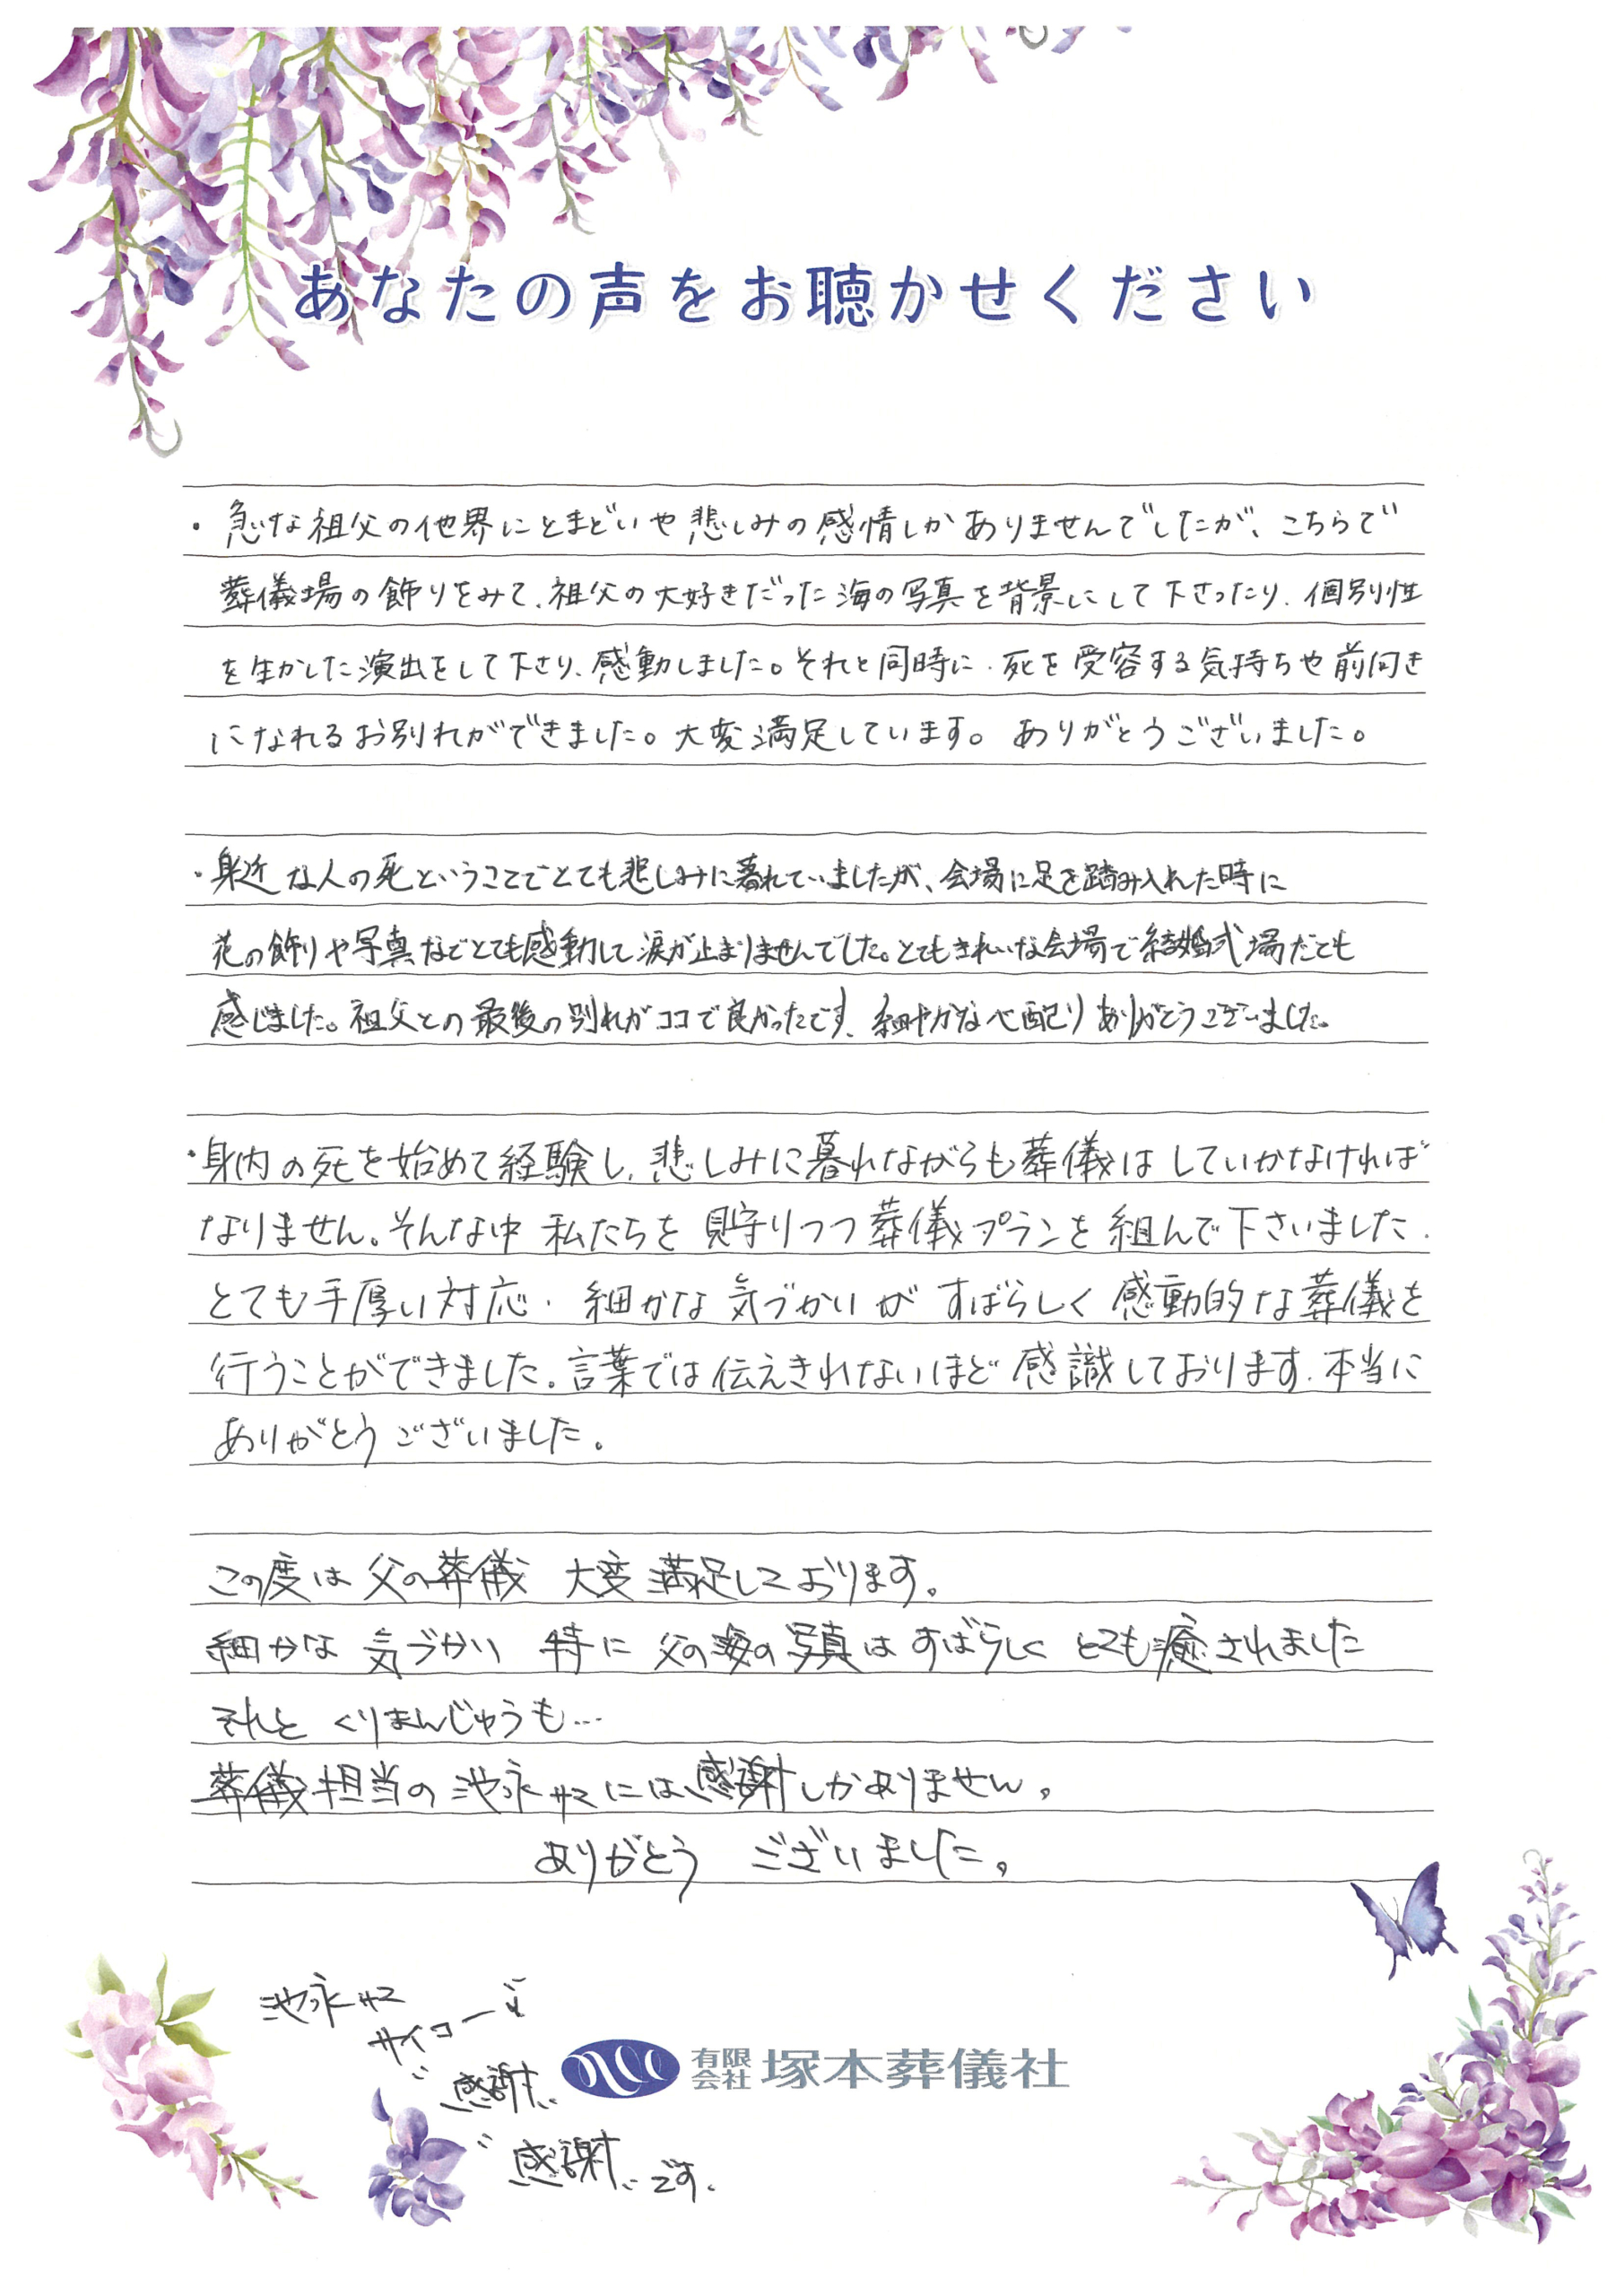 あなたの声をお聴かせください
・急な祖父の他界にとまどいや悲しみの感情しかありませんでしたが、こちらで
葬儀場の飾りをみて、祖父の大好きだった海の写真を背景にして下さったり、個別性
を生かした演出をして下さり、感動しました。それと同時に、死を受容する気持ちや前向き
になれるお別れができました。大変満足しています。ありがとうございました。
・身近な人の死ということでとても悲しみに暮れていましたが、会場に足を踏み入れた時に
花の飾りや写真などとても感動して涙が止まりませんでした。とてもきれいな会場で結婚式場だとも
感じました。祖父との最後の別れがココで良かったです。細やかな心配りありがとうございました。
・身内の死を始めて経験し、悲しみに暮れながらも葬儀はしていかなければ
なりません。そんな中 私たちを見守りつつ葬儀プランを組んで下さいました。
とても手厚い対応、細かな気づかいが すばらしく感動的な葬儀を
行うことができました。言葉では伝えきれないほど感識しております。本当に
ありがとうございました。
この度は父の葬儀 大変満足しております。
細かな 気づかい 特に 父の海の写真は すばらしく とても癒されました
それと くりまんじゅうも…
葬儀担当の池永サンには、感謝しかありません。
ありがとう ございました。
池永サン
サイコーです
感謝
感謝です。
有限会社 塚本葬儀社